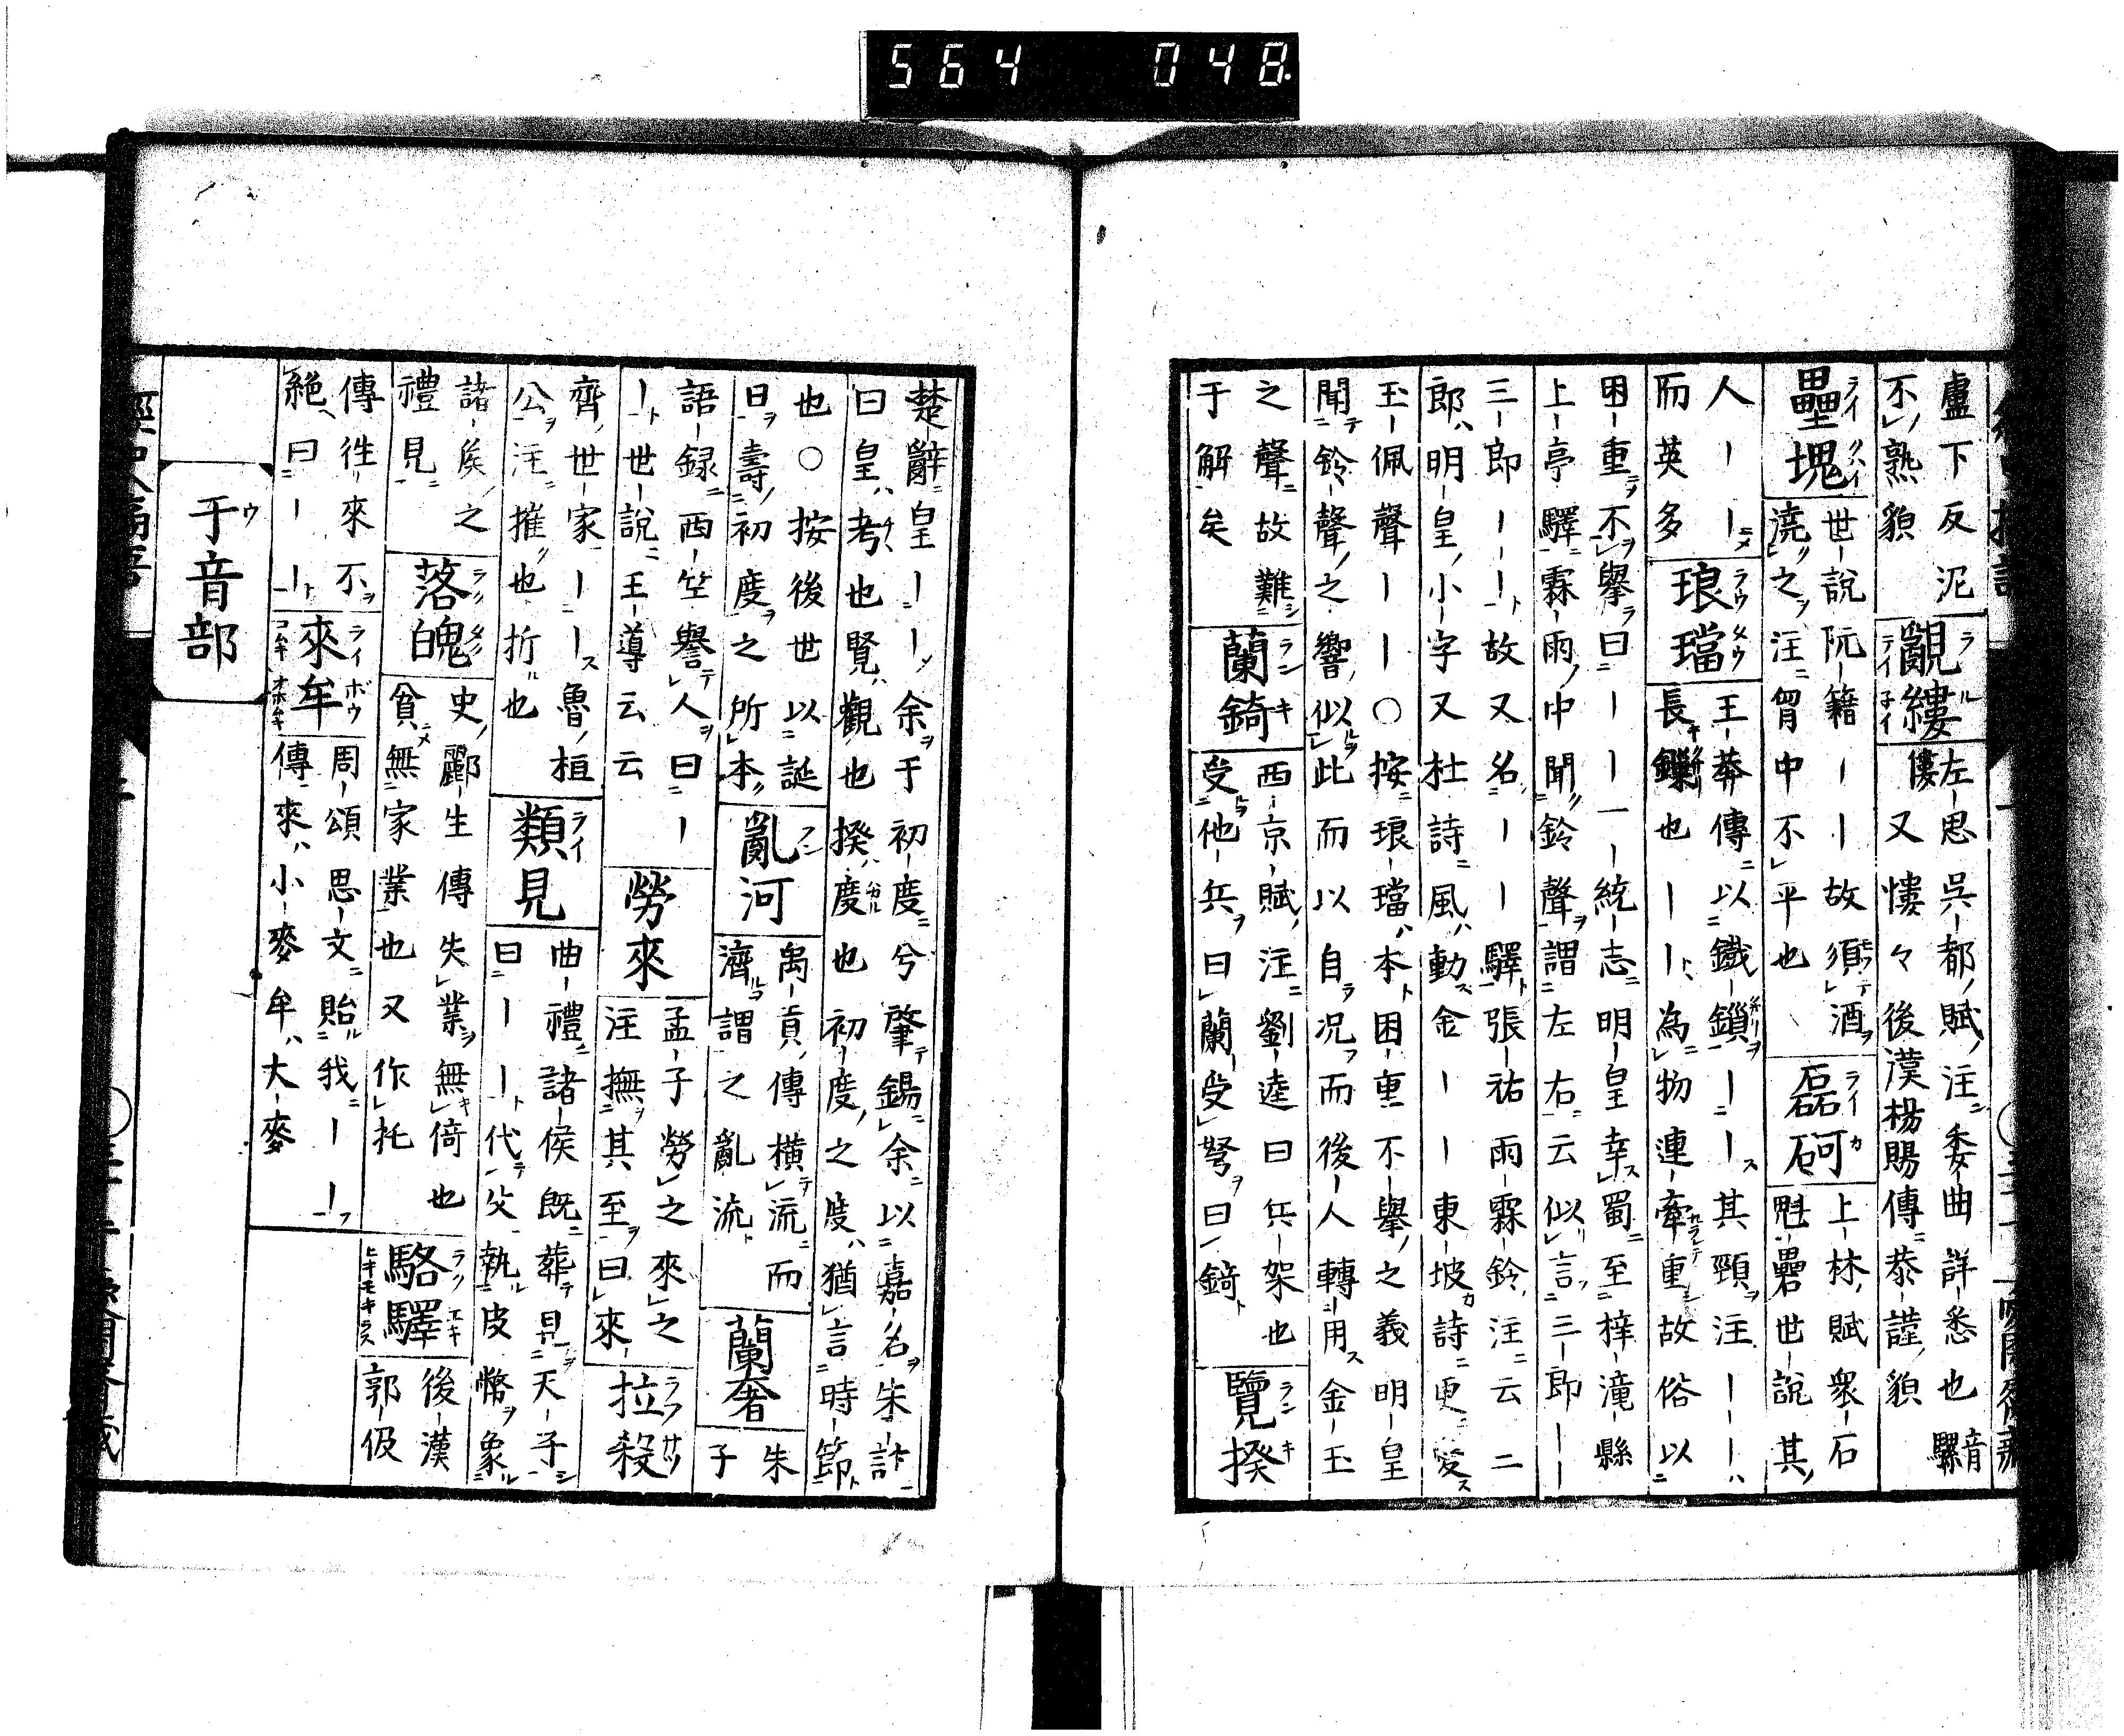 564 048
盧下反泥
不熟貌
覼縷
左思呉都賦注委曲詳悉也音騾
僂又慺々後漢楊賜傳恭謹貌
壘塊
世説阮籍ーー故須酒
澆之注胷中不平也
磊砢
上林賦衆石
魁礨世説其
人ーー
而英多
琅璫
王莽傳以鐵鎖ーー其頸注ーー
長鏁也ーー為物連牽重故俗以
困重不擧曰ーー一統志明皇幸蜀至梓潼縣
上亭驛霖雨中聞鈴聲謂左右云似言三郎ーー
三郎ーー故又名ーー驛張祐雨霖鈴注云二
郎明皇小字又杜詩風動金ーー東坡詩更愛
玉佩聲ーー○按琅璫本困重不擧之義明皇
聞鈴聲之響似此而以自况而後人轉用金玉
之聲故難
于解矣
蘭錡
西京賦注劉逵曰兵架也
受他兵曰蘭受弩曰錡
覽揆
楚辭皇ーー余于初度兮肇錫余以嘉名朱註
曰皇考也覽觀也揆度也初度之度猶言時節
也○按後世以誕
日壽初度之所本
亂河
禹貢傳横流而
濟謂之亂流
蘭奢
朱子
語録西竺譽人曰ー
ー世説王導云云
勞來
孟子勞之來之
注撫其至曰來
拉殺
齊世家ーー魯桓
公注摧也折也
類見
曲禮諸侯既葬見天子
曰ーー代父執皮幣象
諸矦之
禮見
落魄
史酈生傳失業無倚也
貧無家業也又作托
駱驛
後漢
郭伋
傳徃來不
絶曰ーー
來牟
周頌思文貽我ーー
傳來小麥牟大麥
于音部